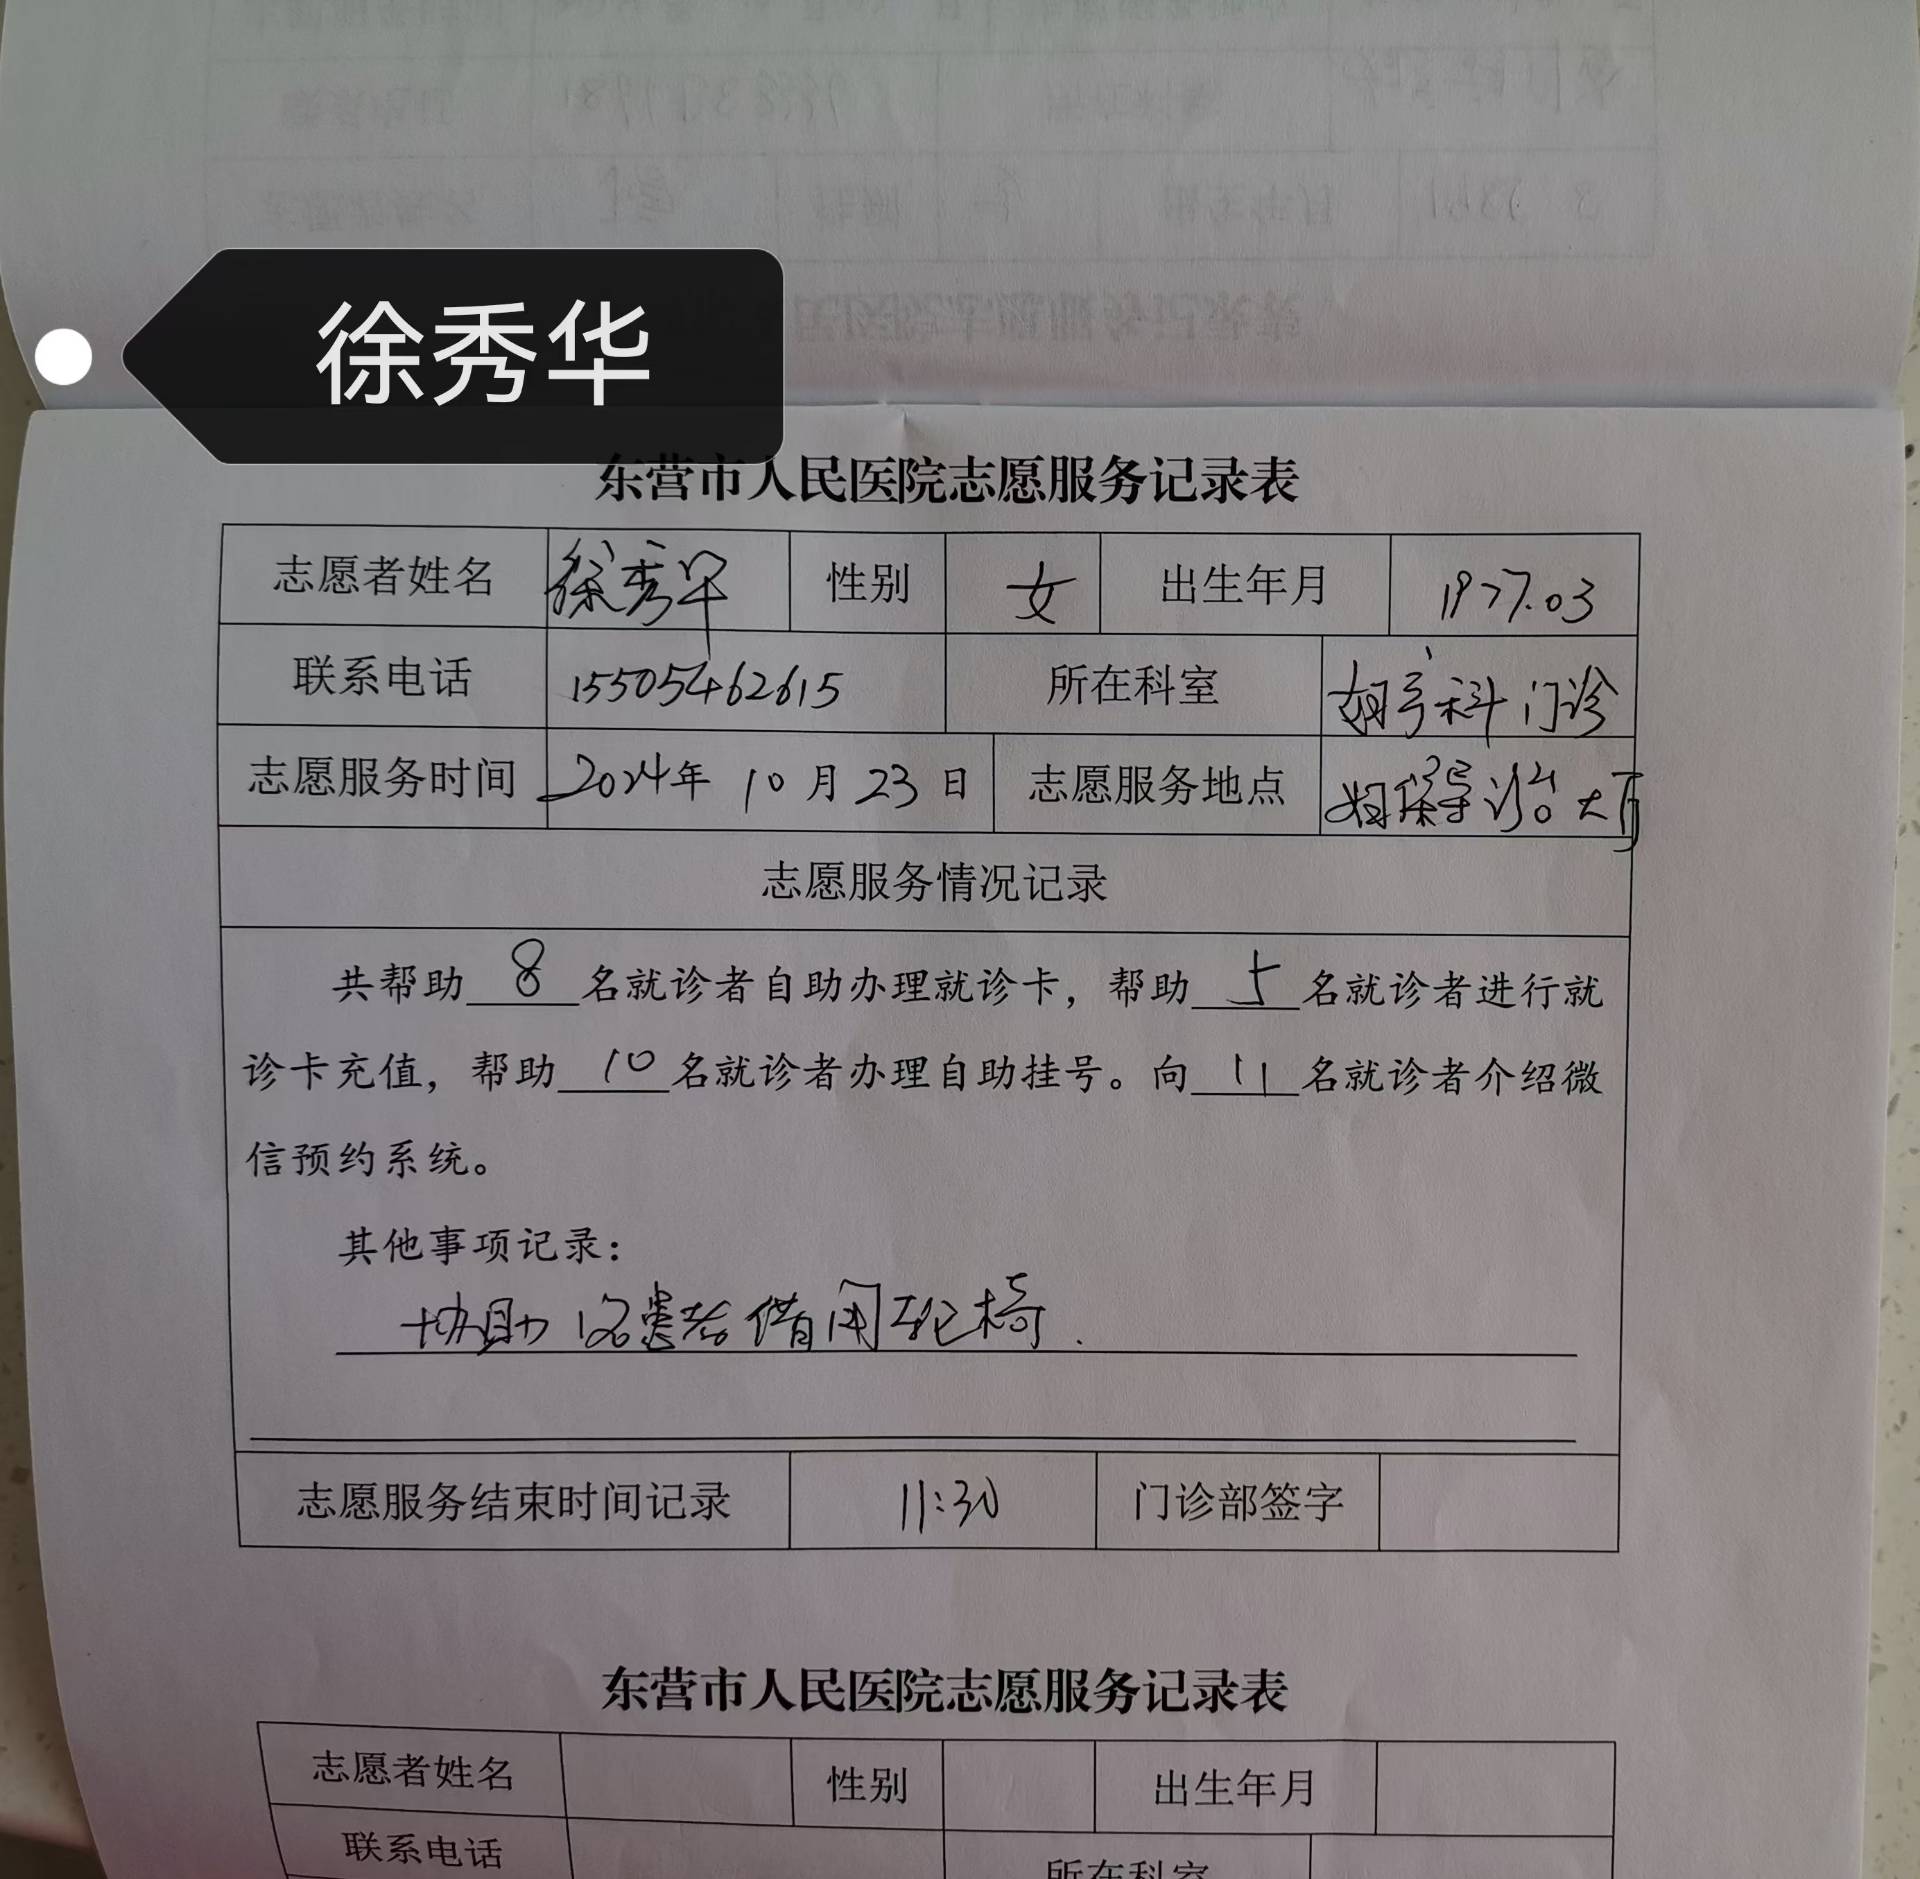 徐秀华
东营市人民医院志愿服务记录表
志愿者姓名 徐秀华 性别 女 出生年月 1977.03
联系电话 15505462615 所在科室 妇产科门诊
志愿服务时间 2024年 10月 23日 志愿服务地点 妇保导诊大厅
志愿服务情况记录
共帮助 8 名就诊者自助办理就诊卡，帮助 5 名就诊者进行就
诊卡充值，帮助 10 名就诊者办理自助挂号。向 11 名就诊者介绍微
信预约系统。
其他事项记录：
协助 1名患者借用轮椅.
志愿服务结束时间记录 11:30 门诊部签字
东营市人民医院志愿服务记录表
志愿者姓名 性别 出生年月
联系电话 所在科室